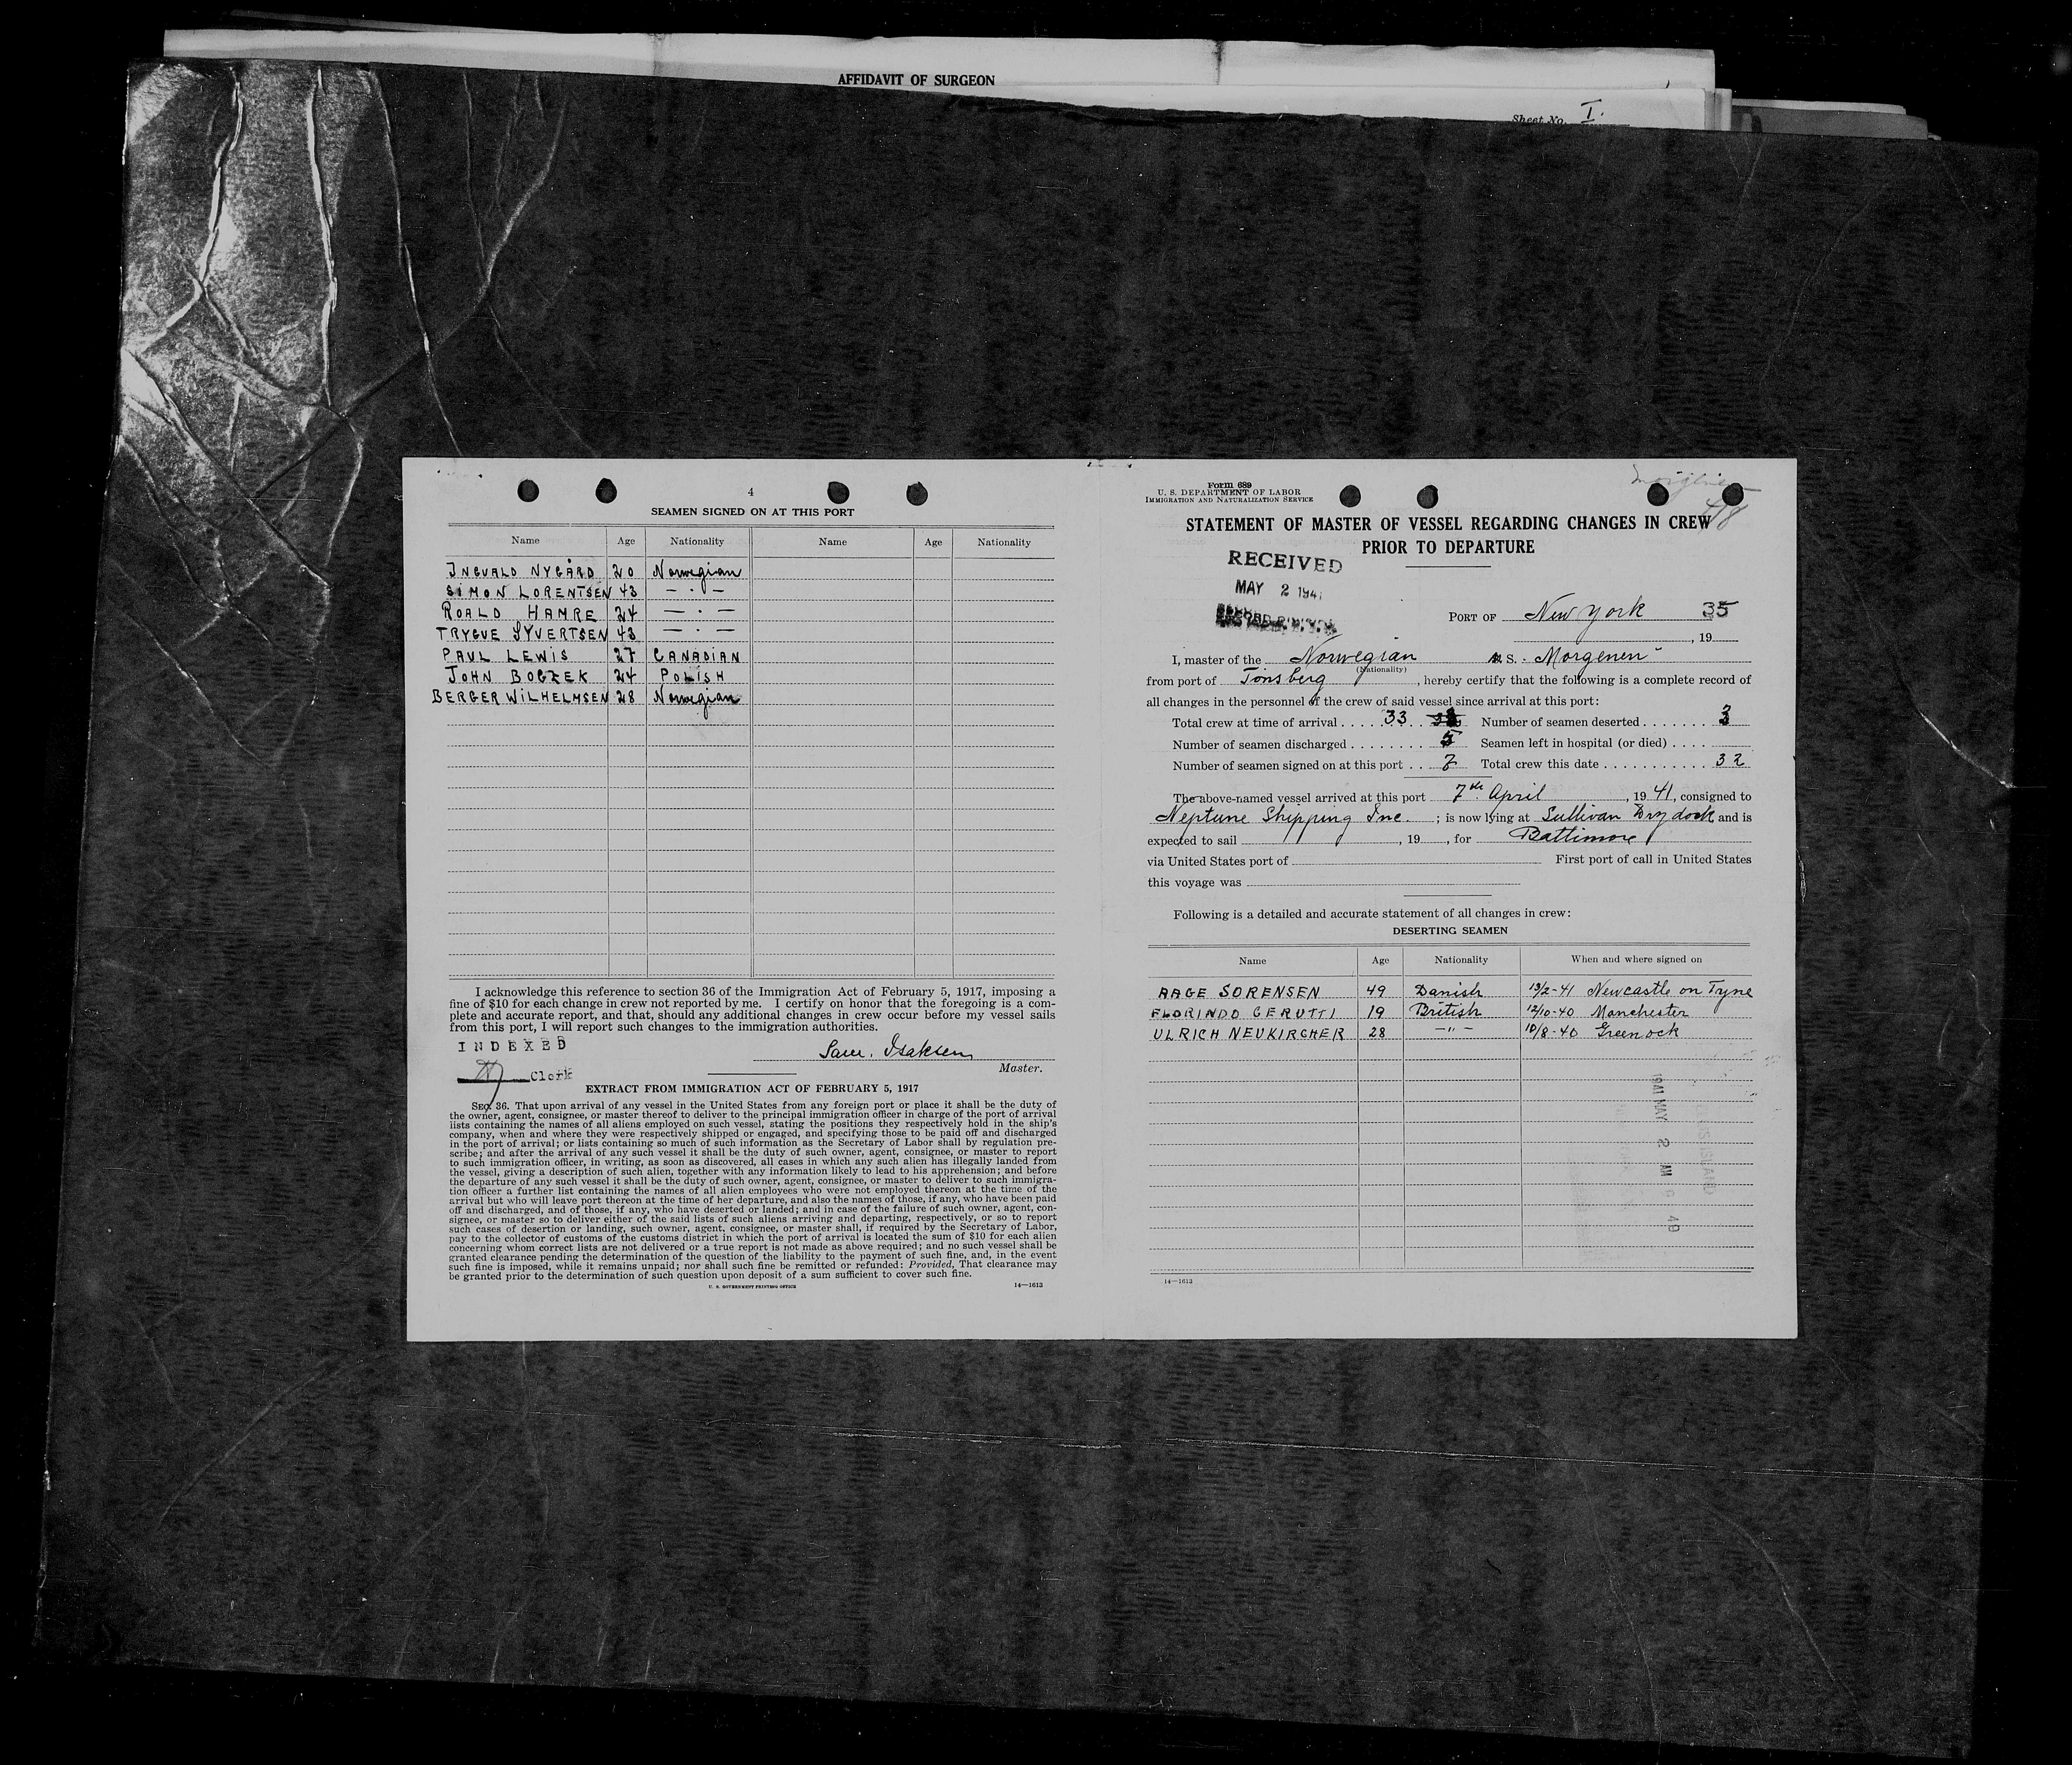 AFFIDAVIT OF SURGEON
Sheet No. I.
4
SEAMEN SIGNED ON AT THIS PORT
Name Age Nationality Name Age Nationality
INGVALD NYGÅRD 20 Norwegian
SIMON LORENTSEN 43 — · —
ROALD HAMRE 24 — · —
TRYGVE SYVERTSEN 43 — · —
PAUL LEWIS 27 CANADIAN
JOHN BOGZEK 24 POLISH
BERGER WILHELMSEN 28 Norwegian
I acknowledge this reference to section 36 of the Immigration Act of February 5, 1917, imposing a
fine of $10 for each change in crew not reported by me. I certify on honor that the foregoing is a com-
plete and accurate report, and that, should any additional changes in crew occur before my vessel sails
from this port, I will report such changes to the immigration authorities.
INDEXED
Clerk
Sam. Isaksen
Master.
EXTRACT FROM IMMIGRATION ACT OF FEBRUARY 5, 1917
SEC. 36. That upon arrival of any vessel in the United States from any foreign port or place it shall be the duty of
the owner, agent, consignee, or master thereof to deliver to the principal immigration officer in charge of the port of arrival
lists containing the names of all aliens employed on such vessel, stating the positions they respectively hold in the ship's
company, when and where they were respectively shipped or engaged, and specifying those to be paid off and discharged
in the port of arrival; or lists containing so much of such information as the Secretary of Labor shall by regulation pre-
scribe; and after the arrival of any such vessel it shall be the duty of such owner, agent, consignee, or master to report
to such immigration officer, in writing, as soon as discovered, all cases in which any such alien has illegally landed from
the vessel, giving a description of such alien, together with any information likely to lead to his apprehension; and before
the departure of any such vessel it shall be the duty of such owner, agent, consignee, or master to deliver to such immigra-
tion officer a further list containing the names of all alien employees who were not employed thereon at the time of the
arrival but who will leave port thereon at the time of her departure, and also the names of those, if any, who have been paid
off and discharged, and of those, if any, who have deserted or landed; and in case of the failure of such owner, agent, con-
signee, or master so to deliver either of the said lists of such aliens arriving and departing, respectively, or so to report
such cases of desertion or landing, such owner, agent, consignee, or master shall, if required by the Secretary of Labor,
pay to the collector of customs of the customs district in which the port of arrival is located the sum of $10 for each alien
concerning whom correct lists are not delivered or a true report is not made as above required; and no such vessel shall be
granted clearance pending the determination of the question of the liability to the payment of such fine, and, in the event
such fine is imposed, while it remains unpaid; nor shall such fine be remitted or refunded: Provided, That clearance may
be granted prior to the determination of such question upon deposit of a sum sufficient to cover such fine.
U. S. GOVERNMENT PRINTING OFFICE 14—1613
Form 689
U. S. DEPARTMENT OF LABOR
IMMIGRATION AND NATURALIZATION SERVICE
4/8
STATEMENT OF MASTER OF VESSEL REGARDING CHANGES IN CREW
PRIOR TO DEPARTURE
RECEIVED
MAY 2 194
PORT OF New York 35
, 19
I, master of the Norwegian S. Morgenen
(Nationality)
from port of Tonsberg, hereby certify that the following is a complete record of
all changes in the personnel of the crew of said vessel since arrival at this port:
Total crew at time of arrival .... 33 Number of seamen deserted ....... 3
Number of seamen discharged ........ 5 Seamen left in hospital (or died) ....
Number of seamen signed on at this port .. 7 Total crew this date ........... 32
The above-named vessel arrived at this port 7th April, 19 41, consigned to
Neptune Shipping Inc. ; is now lying at Sullivan Drydock and is
expected to sail , 19 , for Baltimore
via United States port of First port of call in United States
this voyage was
Following is a detailed and accurate statement of all changes in crew:
DESERTING SEAMEN
Name Age Nationality When and where signed on
AAGE SORENSEN 49 Danish 13/2-41 Newcastle on Tyne
FLORINDO CERUTTI 19 British 12/10-40 Manchester
ULRICH NEUKIRCHER 28 —"— 10/8-40 Greenock
1941 MAY 2 AM 9 49
ELLIS ISLAND
14—1613